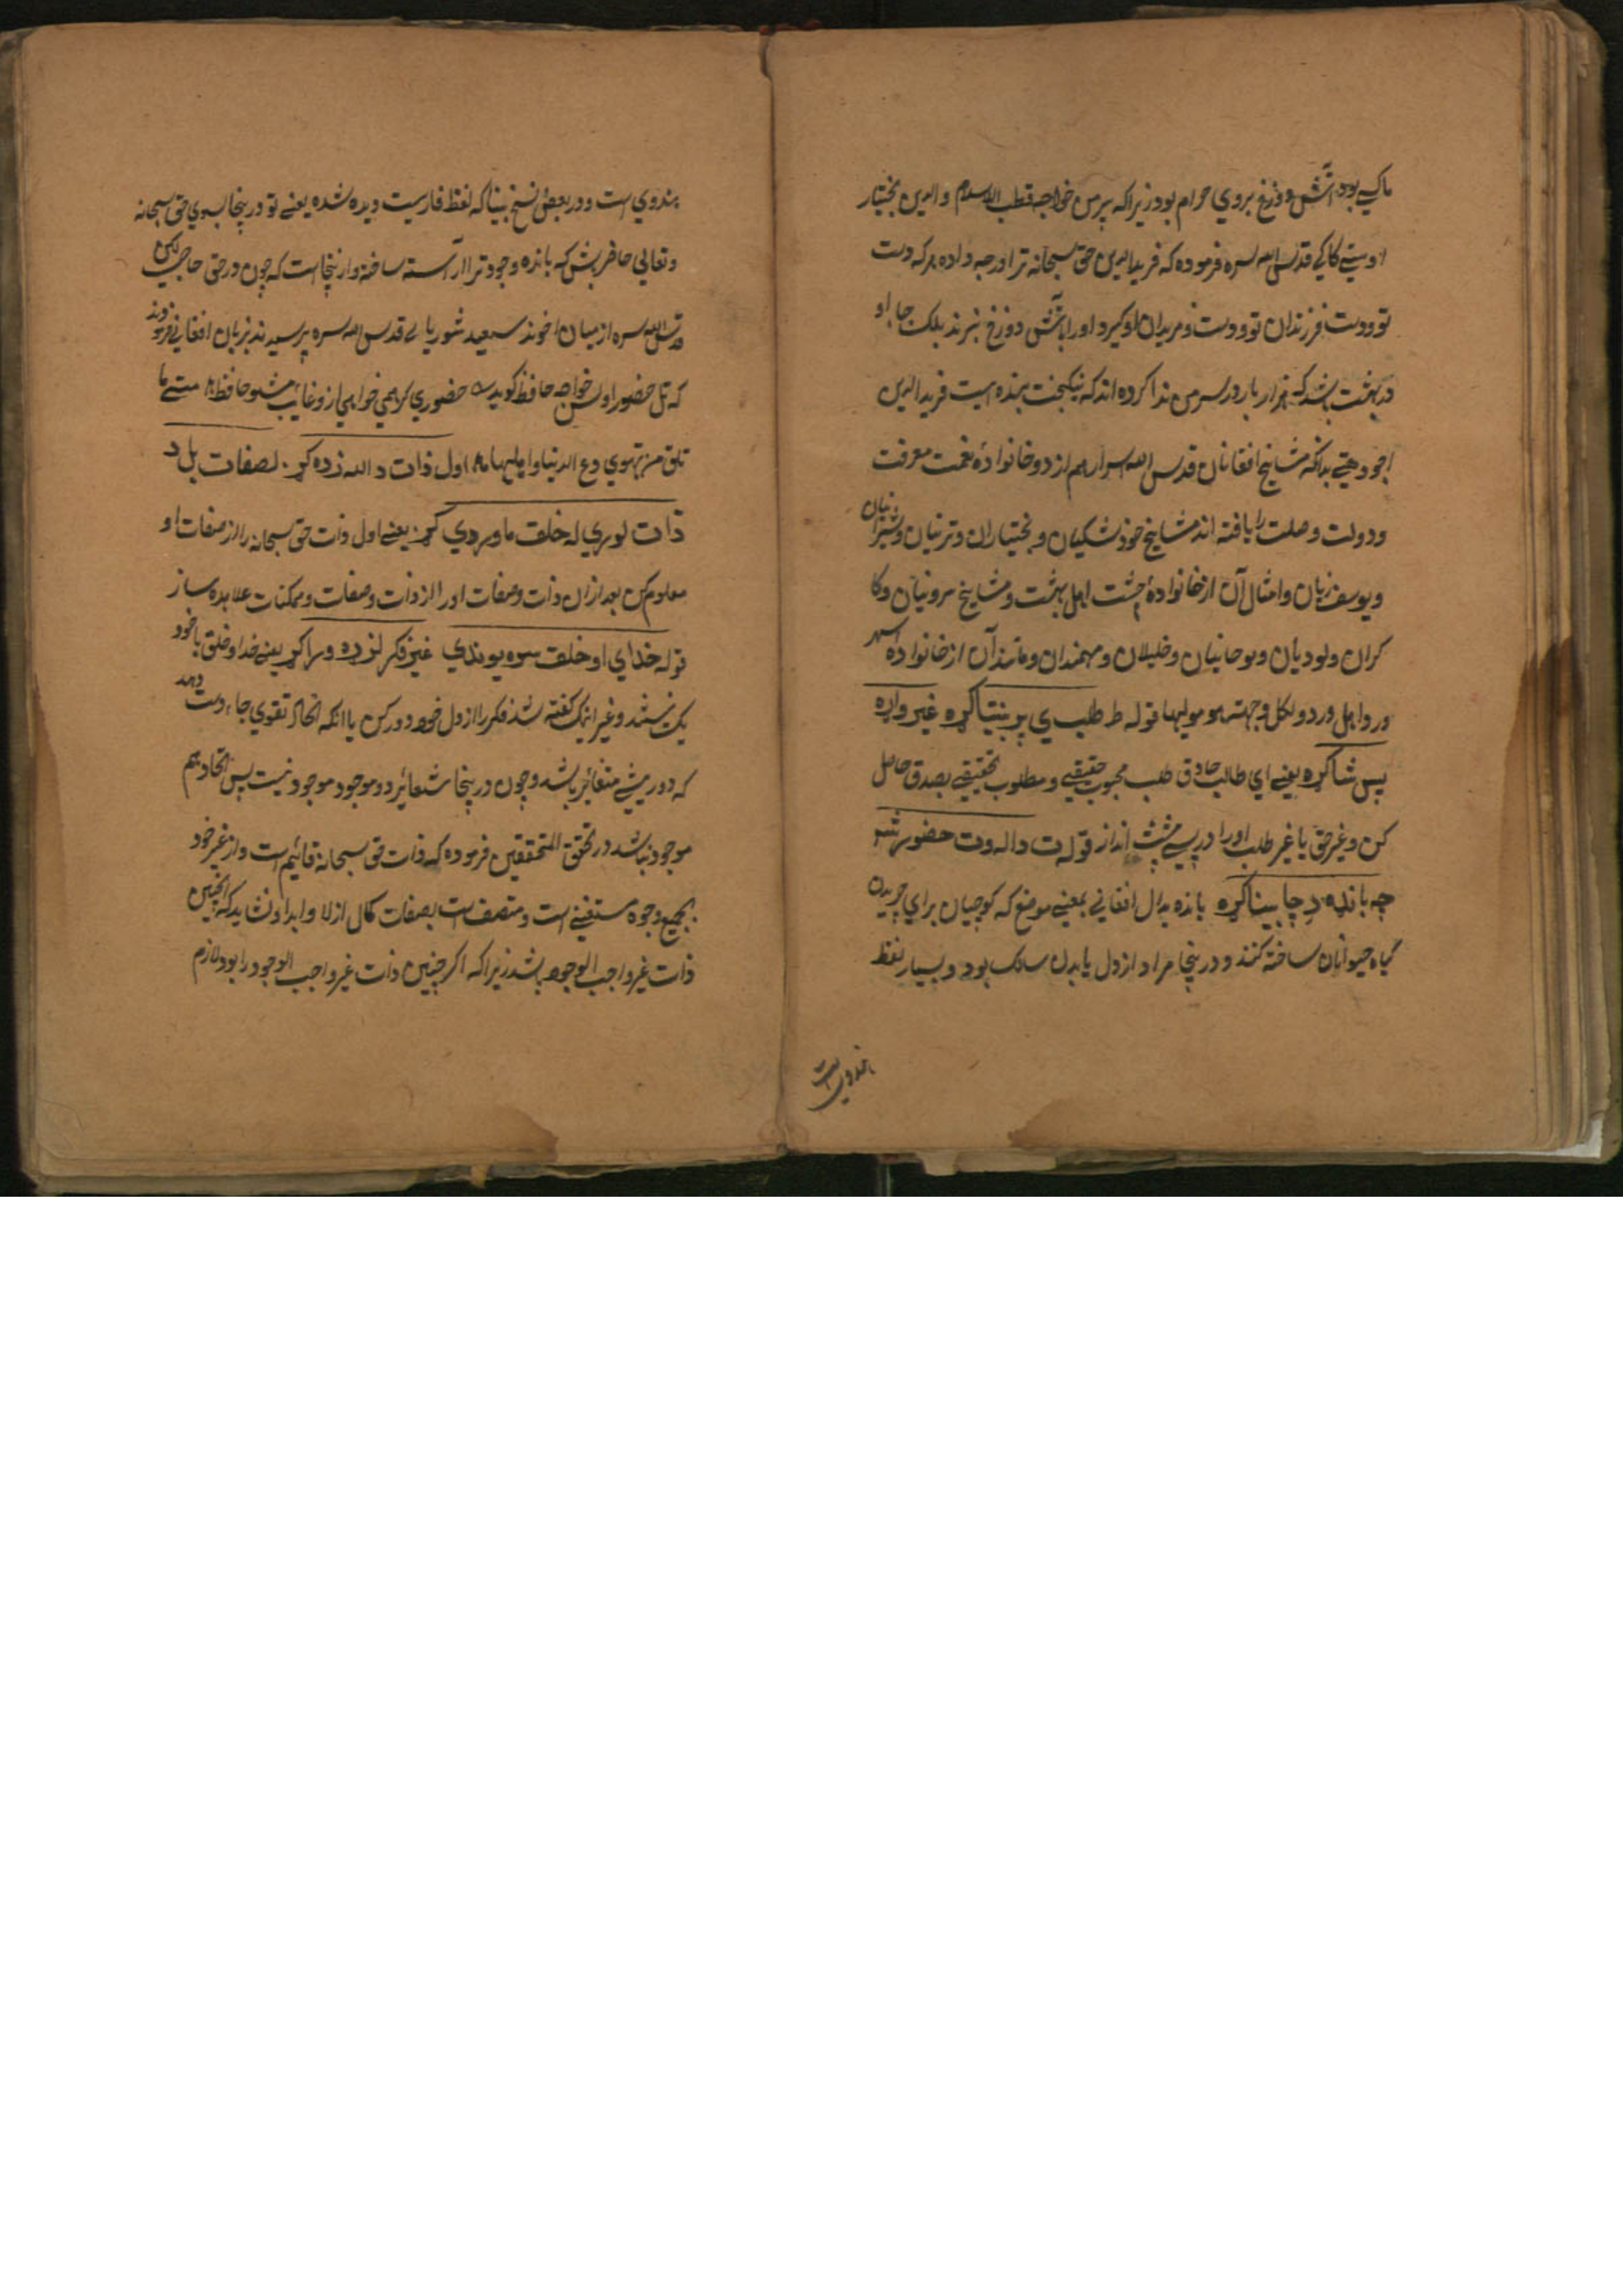 ماکے بود آتش دوزخ بروي حرام بود زیراکه پیرمن خواجه قطب الاسلام والدین بختیار
اوشیے کاکے قدس الله سره فرموده که فریدالدین حق سبحانه ترا درجه داده هرکه دست
تو و دست فرزندان تو و دست مریدان تو گیرد اورا بآتش دوزخ نبرند بلک جاء او
در بهشت باشد که هزار بار در سر من ندا کرده اند که نیکبخت بنده ایست فریدالدین
اجودهنے بدانکه مشایخ افغانان قدس الله اسرارهم از دو خانواده نعمت معرفت
و دولت وصلت را یافته اند مشایخ خویشکیان و بختیاران و ترنیان و شیرانیان
و یوسف زیان و امثال آن از خانوادۀ چشت اهل بهشت و مشایخ سروانیان و کا
کران و لودیان و نوحانیان و خلیلان و مهمندان و مانند آن از خانوادۀ سهر
ورد اهل ورد و لکل وجهة هو مولیها قوله ط طلب ي پر بنتیا کړه غیر واړه
پس شا کړه یعنے اي طالب صادق طلب محبوب حقیقے و مطلوب تحقیقے بصدق حاصل
کن و غیر حق یا غیر طلب اورا در پسے پشت انداز قوله ت د اله وت حضور شه
چه بانډه د چا بینا کړه بانده بدال افغانے بمعنے موضع که کوچیان براي چریدن
گیاه حیوانان ساخته کنند و درینجا مراد از دل یا بدن سالک بود و بسیار لفظ
هندوي است
هندوي است و در بعض نسخ بینا که لفظ فارسیت دیده شده یعنے تو درینجا بسوي حق سبحانه
و تعالي حاضر باش که بانده وجود ترا آراسته ساخته و ازینجا است که چون در حق حاجی
قدس الله سره از میان اخوند سعید شوریانے قدس الله سره پرسیدند بزبان افغانے فرمودند
که تل حضور اوسن خواجه حافظ گوید حضوري گر همي خواهي ازو غایب مشو حافظ متے ما
تلق من تهوي دع الدنیا و امهلها اول ذات د الله زده کړ لصفات بل د
ذات لوري له خلقت ما وردي کړ یعنے اول ذات حق سبحانه را از صفات او
معلوم کن بعد ازان ذات و صفات اورا از ذات و صفات و ممکنات علاحده ساز
قوله خداي او خلقت سره یو ندي غیر فکر لزده ورا کړ یعنے خدا و خلق با خود
یک نیستند و غیر اینک گفته شد فکر را از دل خود دور کن یا آنکه اتحاد تقوي جاء دست دهد
که دو شے متغایر باشد و چون درینجا متغایر دو موجود موجود نیست پس اتحاد هم
موجود نباشد در تحقق المتحققین فرموده که ذات حق سبحانه قائیم است و از غیر خود
بجمیع وجوه مستغنے است و متصف است بصفات کمال ازلا و ابدا و نشاید که اینچنین
ذات غیر واجب الوجود باشد زیراکه اگر چنین ذات غیر واجب الوجود را بود لازم